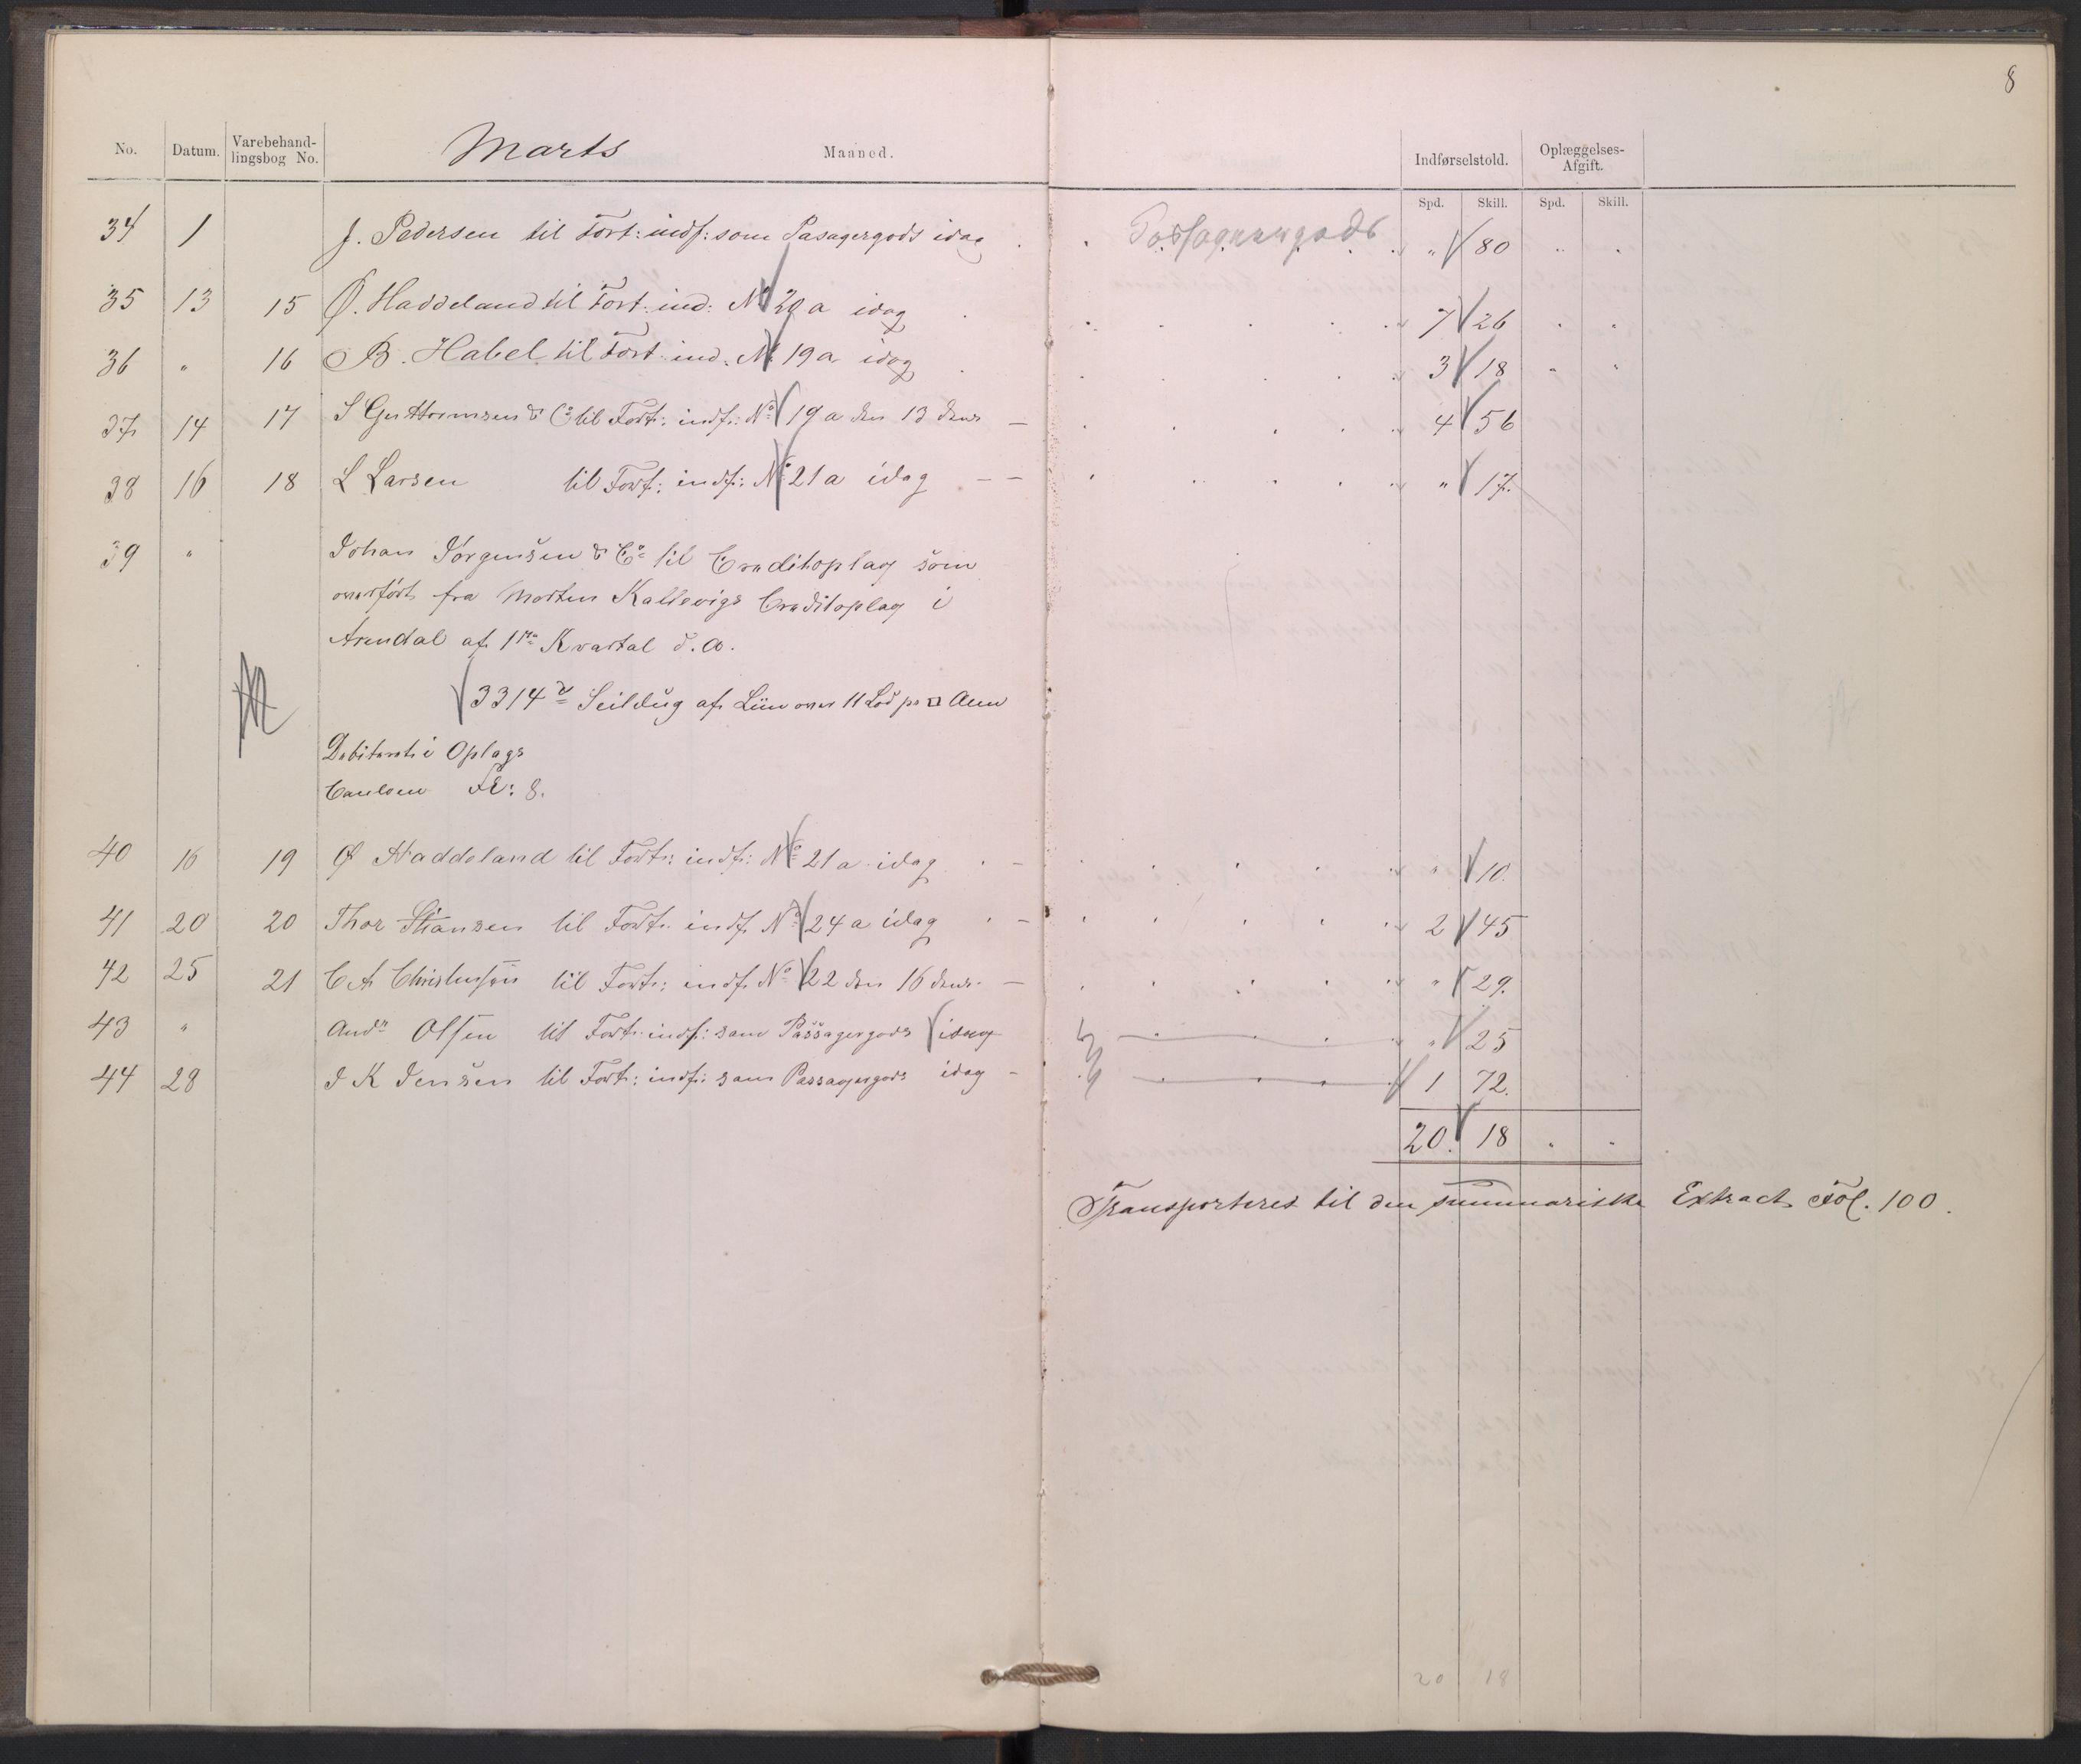 8
No. Datum. Varebehand-lingsbog No. Marts Maaned. Indførselstold. Oplæggelses-Afgift.
Spd. Skill. Spd. Skill.
34 1 J. Pedersen til Fort: indf: som Pasagergods idag . . Passagergods " 80 " "
35 13 15 Ø. Haddeland til Fort: ind: No 20 a idag 7 26 " "
36 " 16 B. Habel til Fort: ind. No 19 a idag 3 18 " "
37 14 17 S Guttormsen & Co til Fort: indf: No 19 a den 13 dens – 4 56
38 16 18 L Larsen til Fort: indf: No 21 a idag – – " 17.
39 " Johan Jørgensen & Co til Creditoplag som
overført fra Morten Kallevigs Creditoplag i
Arendal af 1ste Kvartal d. A.
3314 Seildug af Liin over 11 Lod pr □ Alen
Debiteret i Oplags
Contoen Fol: 8.
40 16 19 Ø Haddeland til Fort: indf: No 21 a idag . – " 10.
41 20 20 Thor Stiansen til Fort: indf. No 24 a idag . – 2 45
42 25 21 C A Christensen til Fort: indf. No 22 den 16 dens. – " 29.
43 " Andr Olsen til Fort: indf: som Passagergods idag " 25
44 28 J K Jensen til Fort: indf: som Passagergods idag – 1 72.
20. 18 " "
Transporteres til den summariske Extract Fol. 100.
20 18